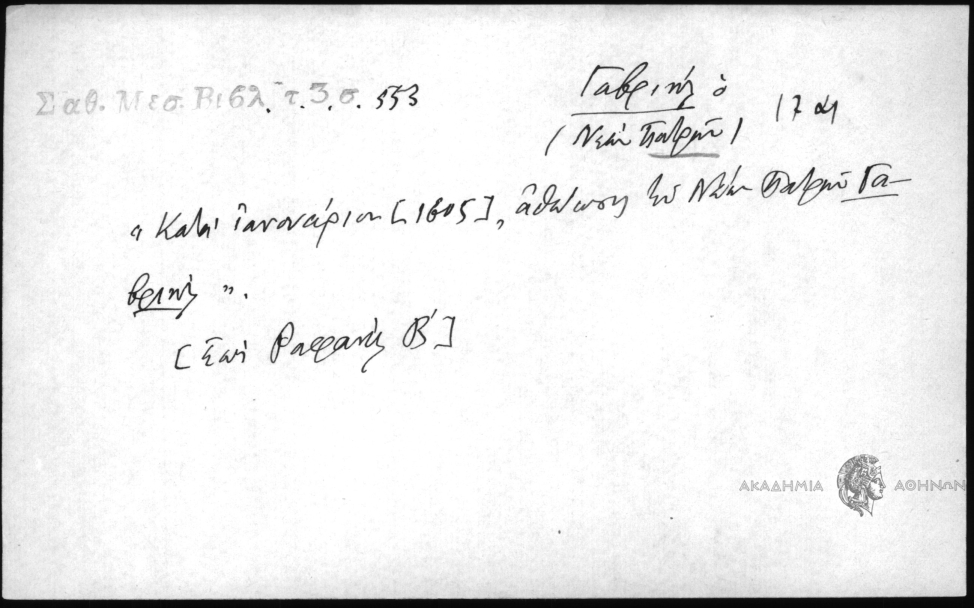 Σαθ. Μεσ. Βιβλ. τ. 3 σ. 553
Γαβριήλ ὁ
(Νέων Πατρῶν)
17 αι
" Κατά Ἰανουάριον [1605], ἀθώωσις τοῦ Νέων Πατρῶν Γα-
βριήλ ".
[Ἐπί Ραφαήλ Β΄]
ΑΚΑΔΗΜΙΑ ΑΘΗΝΩΝ